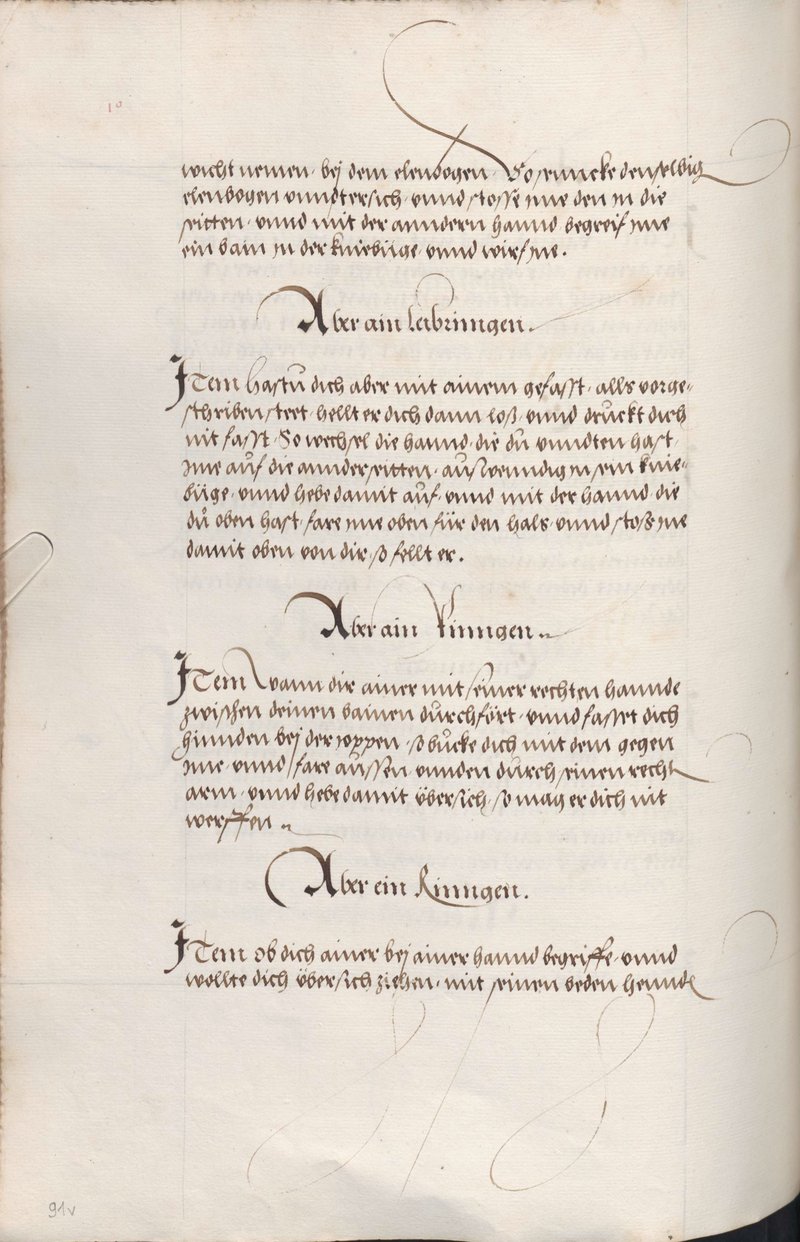 10
wicht nemen · bej dem elenbogen · So senncke denselbig
elenbogen unndtersich · unnd stosse ime den in die
seitten · unnd mit der anndern hannd begreif ime
ein bain in der kniebüge · unnd wirf ine .
Aber ain leibrinngen .
ITem hastu dich aber mit ainem gefasst · alls vorge-
schriben steet · hellt er dich dann loß · unnd druckt dich
nit fasst · So wechsel die hannd · die du unndten hast
ime auf die annder seitten · auswenndig in sein knie-
büge · unnd hebe damit auf · unnd mit der hannd · die
du oben hast · fare ime oben für den hals · unnd stoß ine
damit oben von dir · so fellt er .
Aber ain Rinngen .
ITem wann dir ainer mit seiner rechten hannde
zwischen deinen bainen durchfört · unnd fasset dich
hinnden bej der joppen · so bucke dich mit dem gegen
ime · unnd fare aussen unnden durch seinen recht
arm · unnd hebe damit übersich · so mag er dich nit
werffen .
Aber ein Rinngen .
ITem ob dich ainer bej ainer hannd begriffe · unnd
wollte dich übersich ziehen · mit seinen beden hennde
91v